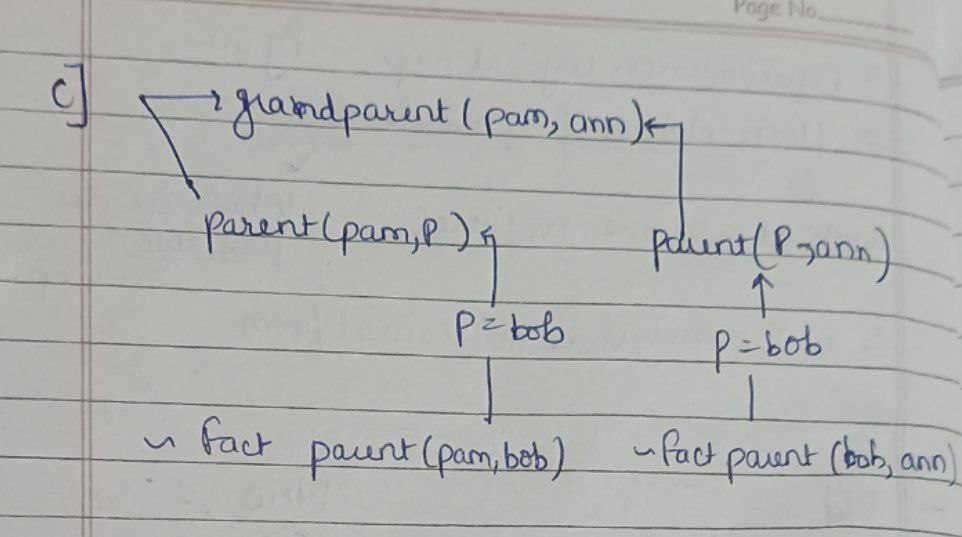 Page No.
c]
grandparent (pam, ann)
parent(pam,P) parent(P,ann)
P=bob P=bob
~ fact parent(pam,bob) ~fact parent (bob, ann)